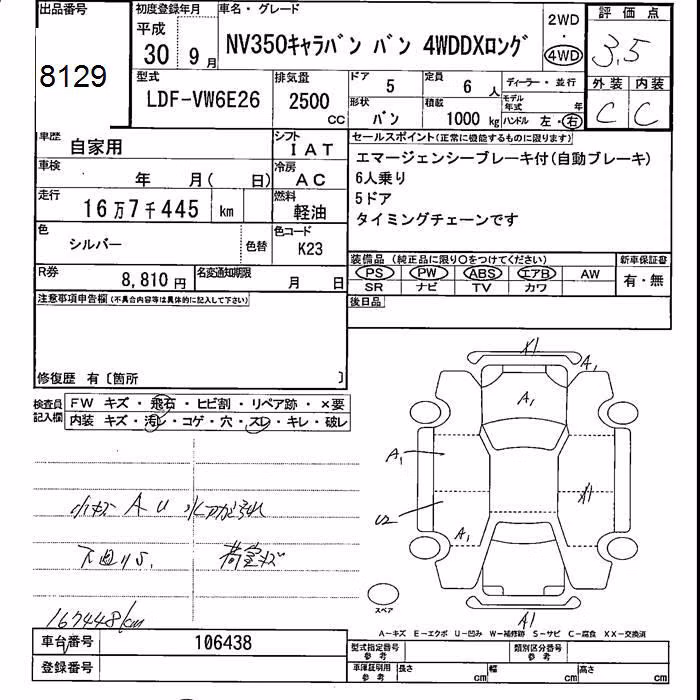 出品番号
8129
初度登録年月
平成
30 9月
車名・グレード
NV350キャラバン バン 4WDDXロング
2WD
・
4WD
評価点
3.5
外装 内装
C C
型式
LDF-VW6E26
排気量
2500
cc
ドア
5
定員
6人
ディーラー・並行
形状
バン
積載
1000 kg
モデル年式 年
ハンドル 左・右
車歴
自家用
シフト
IAT
車検
年 月( 日)
冷房
AC
走行
16万7千445 km
燃料
軽油
色
シルバー
色替
色コード
K23
R券
8,810円
名変通知期限
月 日
セールスポイント(正常に機能するものに限ります)
エマージェンシーブレーキ付(自動ブレーキ)
6人乗り
5ドア
タイミングチェーンです
装備品(純正品に限り○をつけてください)
新車保証書
PS PW ABS エアB AW
SR ナビ TV カワ
有・無
後日品
注意事項申告欄(不具合内容等は具体的に記入して下さい)
修復歴 有〔箇所 〕
検査員記入欄
FW キズ・飛石・ヒビ割・リペア跡・×要
内装 キズ・汚レ・コゲ・穴・スレ・キレ・破レ
小キズ A U
下回りS.
荷室キズ
167448km
X1
A1
A1
A1
X1
U2
A1
A1
スペア
A-キズ E-エクボ U-凹み W-補修跡 S-サビ C-腐食 XX-交換済
車台番号
106438
登録番号
型式指定番号
参考
類別区分番号
参考
車庫証明用
参考
長さ cm
幅 cm
高さ cm